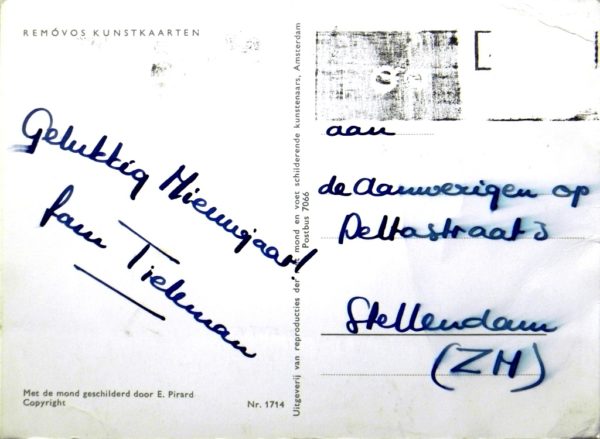 REMÓVOS KUNSTKAARTEN
Gelukkig Nieuwjaar!
fam Tieleman
Met de mond geschilderd door E. Pirard
Copyright
Nr. 1714
Uitgeverij van reproducties der met mond en voet schilderende kunstenaars, Amsterdam
Postbus 7066
aan
de Aanwezigen op
Deltastraat 3
Stellendam
(ZH)